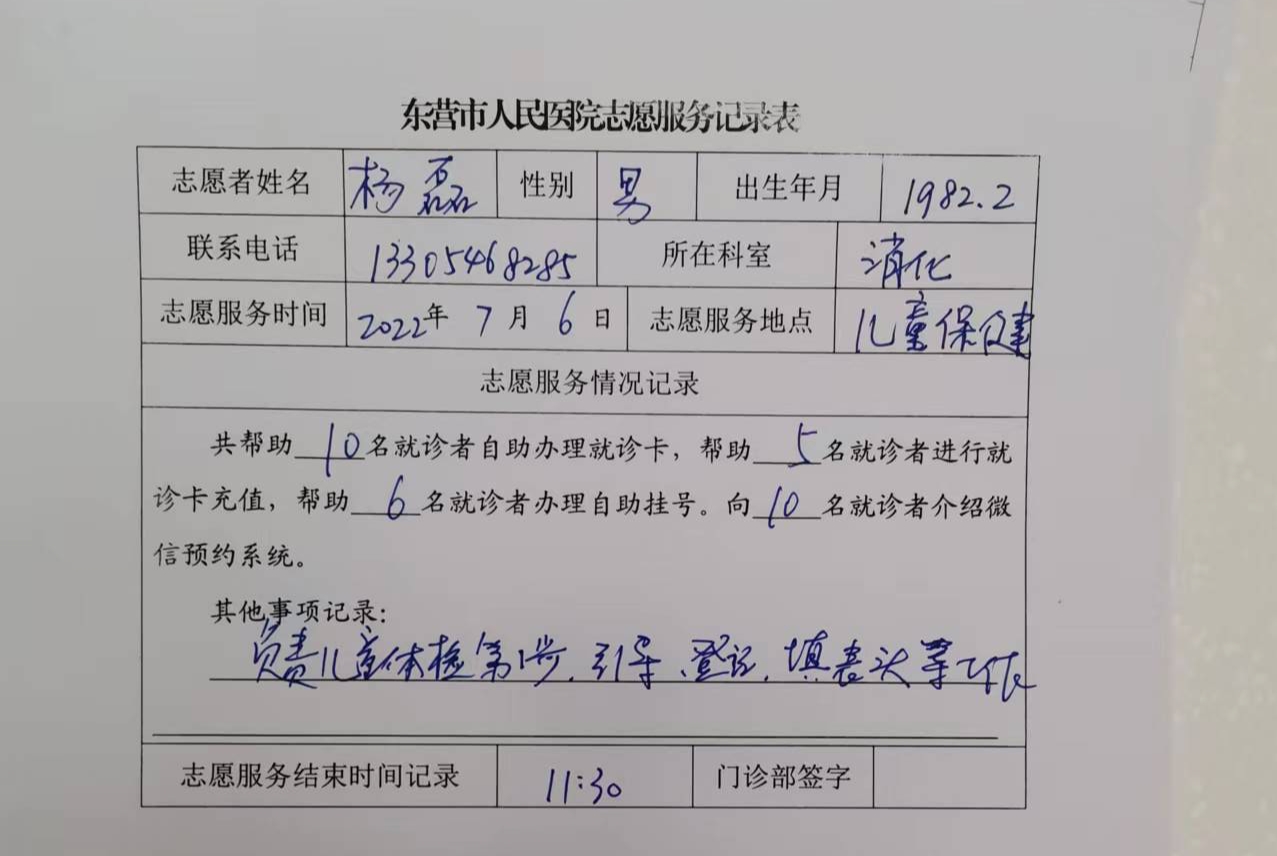 东营市人民医院志愿服务记录表
志愿者姓名 杨磊 性别 男 出生年月 1982.2
联系电话 13305468285 所在科室 消化
志愿服务时间 2022年 7月 6日 志愿服务地点 儿童保健
志愿服务情况记录
共帮助10名就诊者自助办理就诊卡，帮助5名就诊者进行就
诊卡充值，帮助6名就诊者办理自助挂号。向10名就诊者介绍微
信预约系统。
其他事项记录：
负责儿童体检第1步、引导、登记、填表头等工作
志愿服务结束时间记录 11:30 门诊部签字